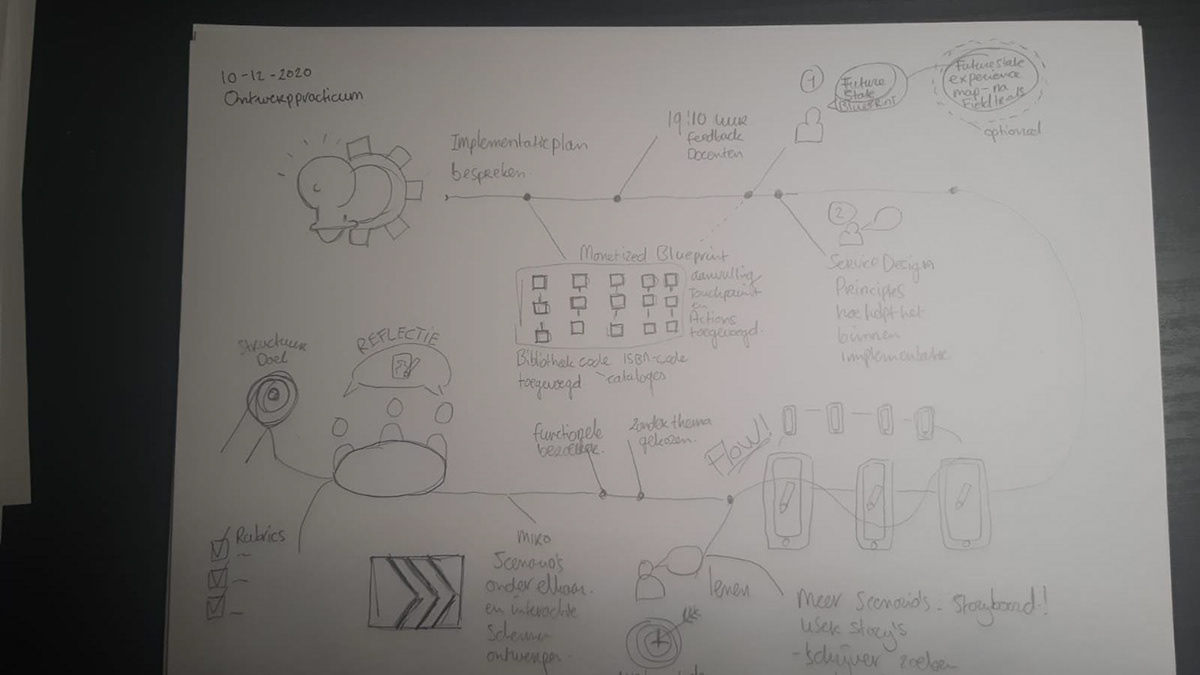 10-12-2020
Ontwerppracticum
Implementatieplan
bespreken.
19:10 uur
Feedback
Docenten
1
Future
State
Blueprint
Future state
experience
map - na
Fieldtrials
optioneel
Monetized Blueprint
aanvulling
Touchpoint
en
Actions
toegevoegd.
Bibliotheek code ISBN-code
toegevoegd catalogos
2
Service Design
Principles
hoe helpt het
binnen
implementatie
Structuur
Doel
REFLECTIE
functionele
bezoeker.
zonder thema
gekozen.
Flow!
Rubrics
MIRO
Scenario's
onder elkaar.
en interactie
Schermen
ontwerpen.
lenen
Meer Scenario's - Storyboard!
user story's
- Schrijver zoeken